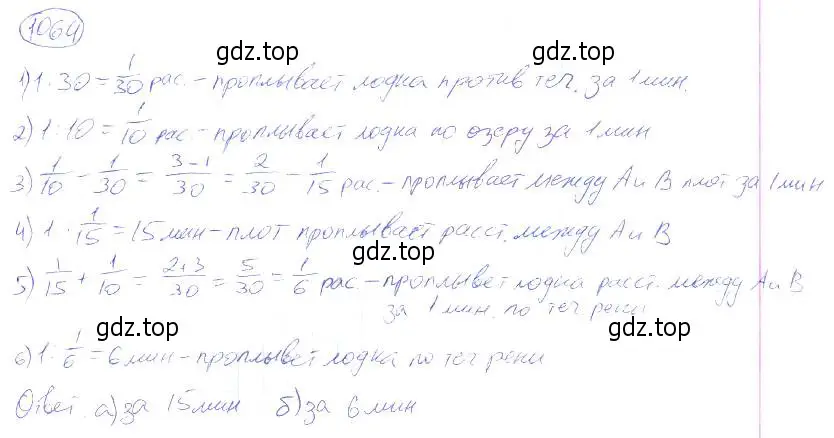 1064
gdz.top gdz.top
1) 1 · 30 = 1/30 рас. – проплывает лодка против теч. за 1 мин.
gdz.top gdz.top
2) 1 : 10 = 1/10 рас – проплывает лодка по озеру за 1 мин
3) 1/10 – 1/30 = 3-1/30 = 2/30 – 1/15 рас. – проплывает между А и В плот за 1 мин
gdz.top gdz.top
4) 1 · 1/15 = 15 мин – плот проплывает расст. между А и В
5) 1/15 + 1/10 = 2+3/30 = 5/30 = 1/6 рас – проплывет лодка расст. между А и В
за 1 мин. по теч реки
gdz.top gdz.top
6) 1 · 1/6 = 6 мин – проплывет лодка по теч реки
gdz.top gdz.top
Ответ. а) за 15 мин б) за 6 мин